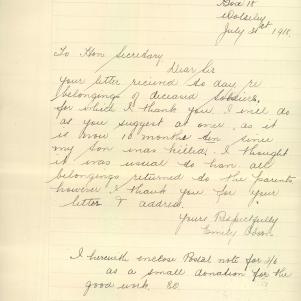 Box 18
Wolseley
July 31st 1918.
To Hon Secretary
Dear Sir
Your letter recieved to day re
belongings of deceased soldiers,
for which I thank you. I will do
as you suggest at once, as it
is now 10 months since
my Son was killed. I thought
it was usual to han all
belongings returned to the parents
however I thank you for your
letter & address.
Yours Respectfully
Emily
I herewith enclose Postal note for
as a small donation for the
good work. EO